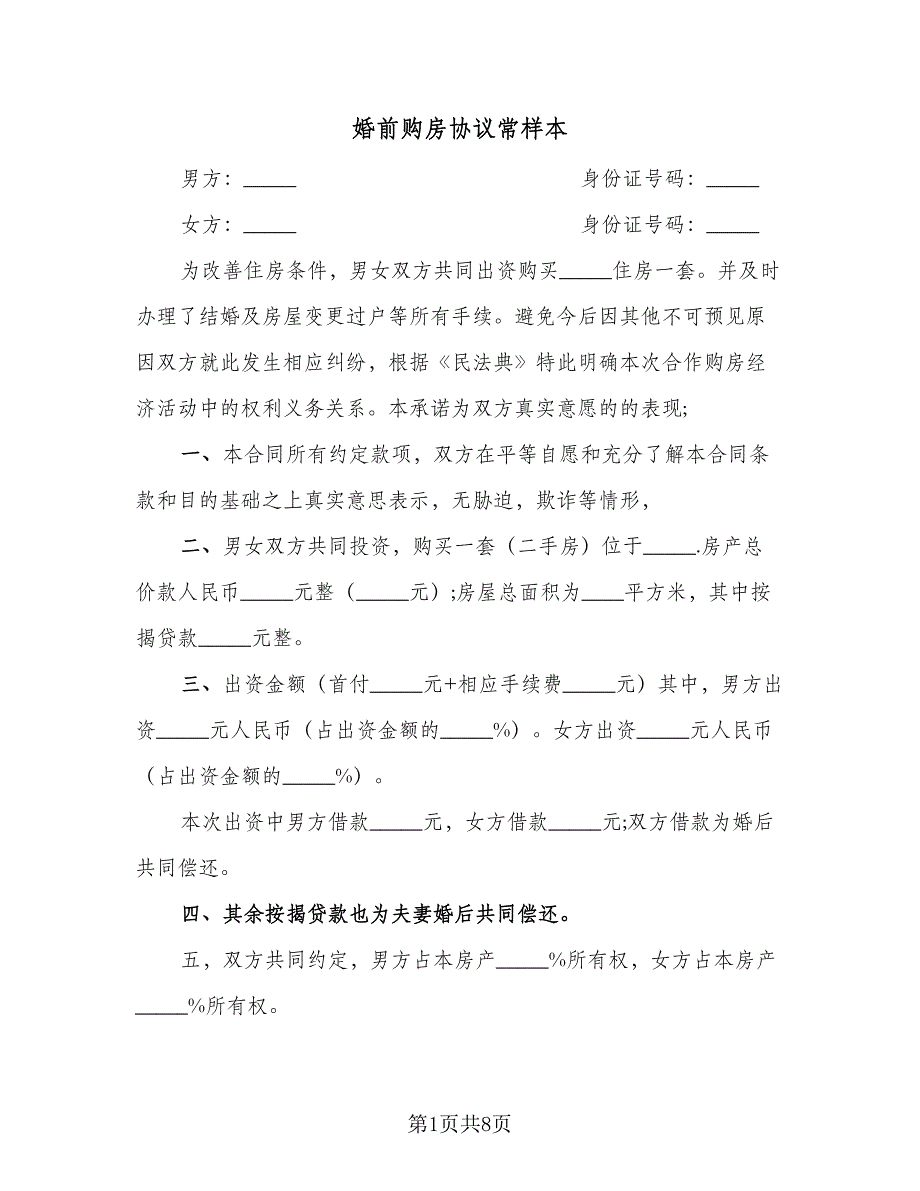 婚前购房协议常样本
男方：_____ 身份证号码：_____
女方：_____ 身份证号码：_____
为改善住房条件，男女双方共同出资购买_____住房一套。并及时
办理了结婚及房屋变更过户等所有手续。避免今后因其他不可预见原
因双方就此发生相应纠纷，根据《民法典》特此明确本次合作购房经
济活动中的权利义务关系。本承诺为双方真实意愿的的表现;
一、本合同所有约定款项，双方在平等自愿和充分了解本合同条
款和目的基础之上真实意思表示，无胁迫，欺诈等情形，
二、男女双方共同投资，购买一套（二手房）位于_____.房产总
价款人民币_____元整（_____元）;房屋总面积为____平方米，其中按
揭贷款_____元整。
三、出资金额（首付_____元+相应手续费_____元）其中，男方出
资_____元人民币（占出资金额的_____%）。女方出资_____元人民币
（占出资金额的_____%）。
本次出资中男方借款_____元，女方借款_____元;双方借款为婚后
共同偿还。
四、其余按揭贷款也为夫妻婚后共同偿还。
五，双方共同约定，男方占本房产_____%所有权，女方占本房产
_____%所有权。
第1页共8页